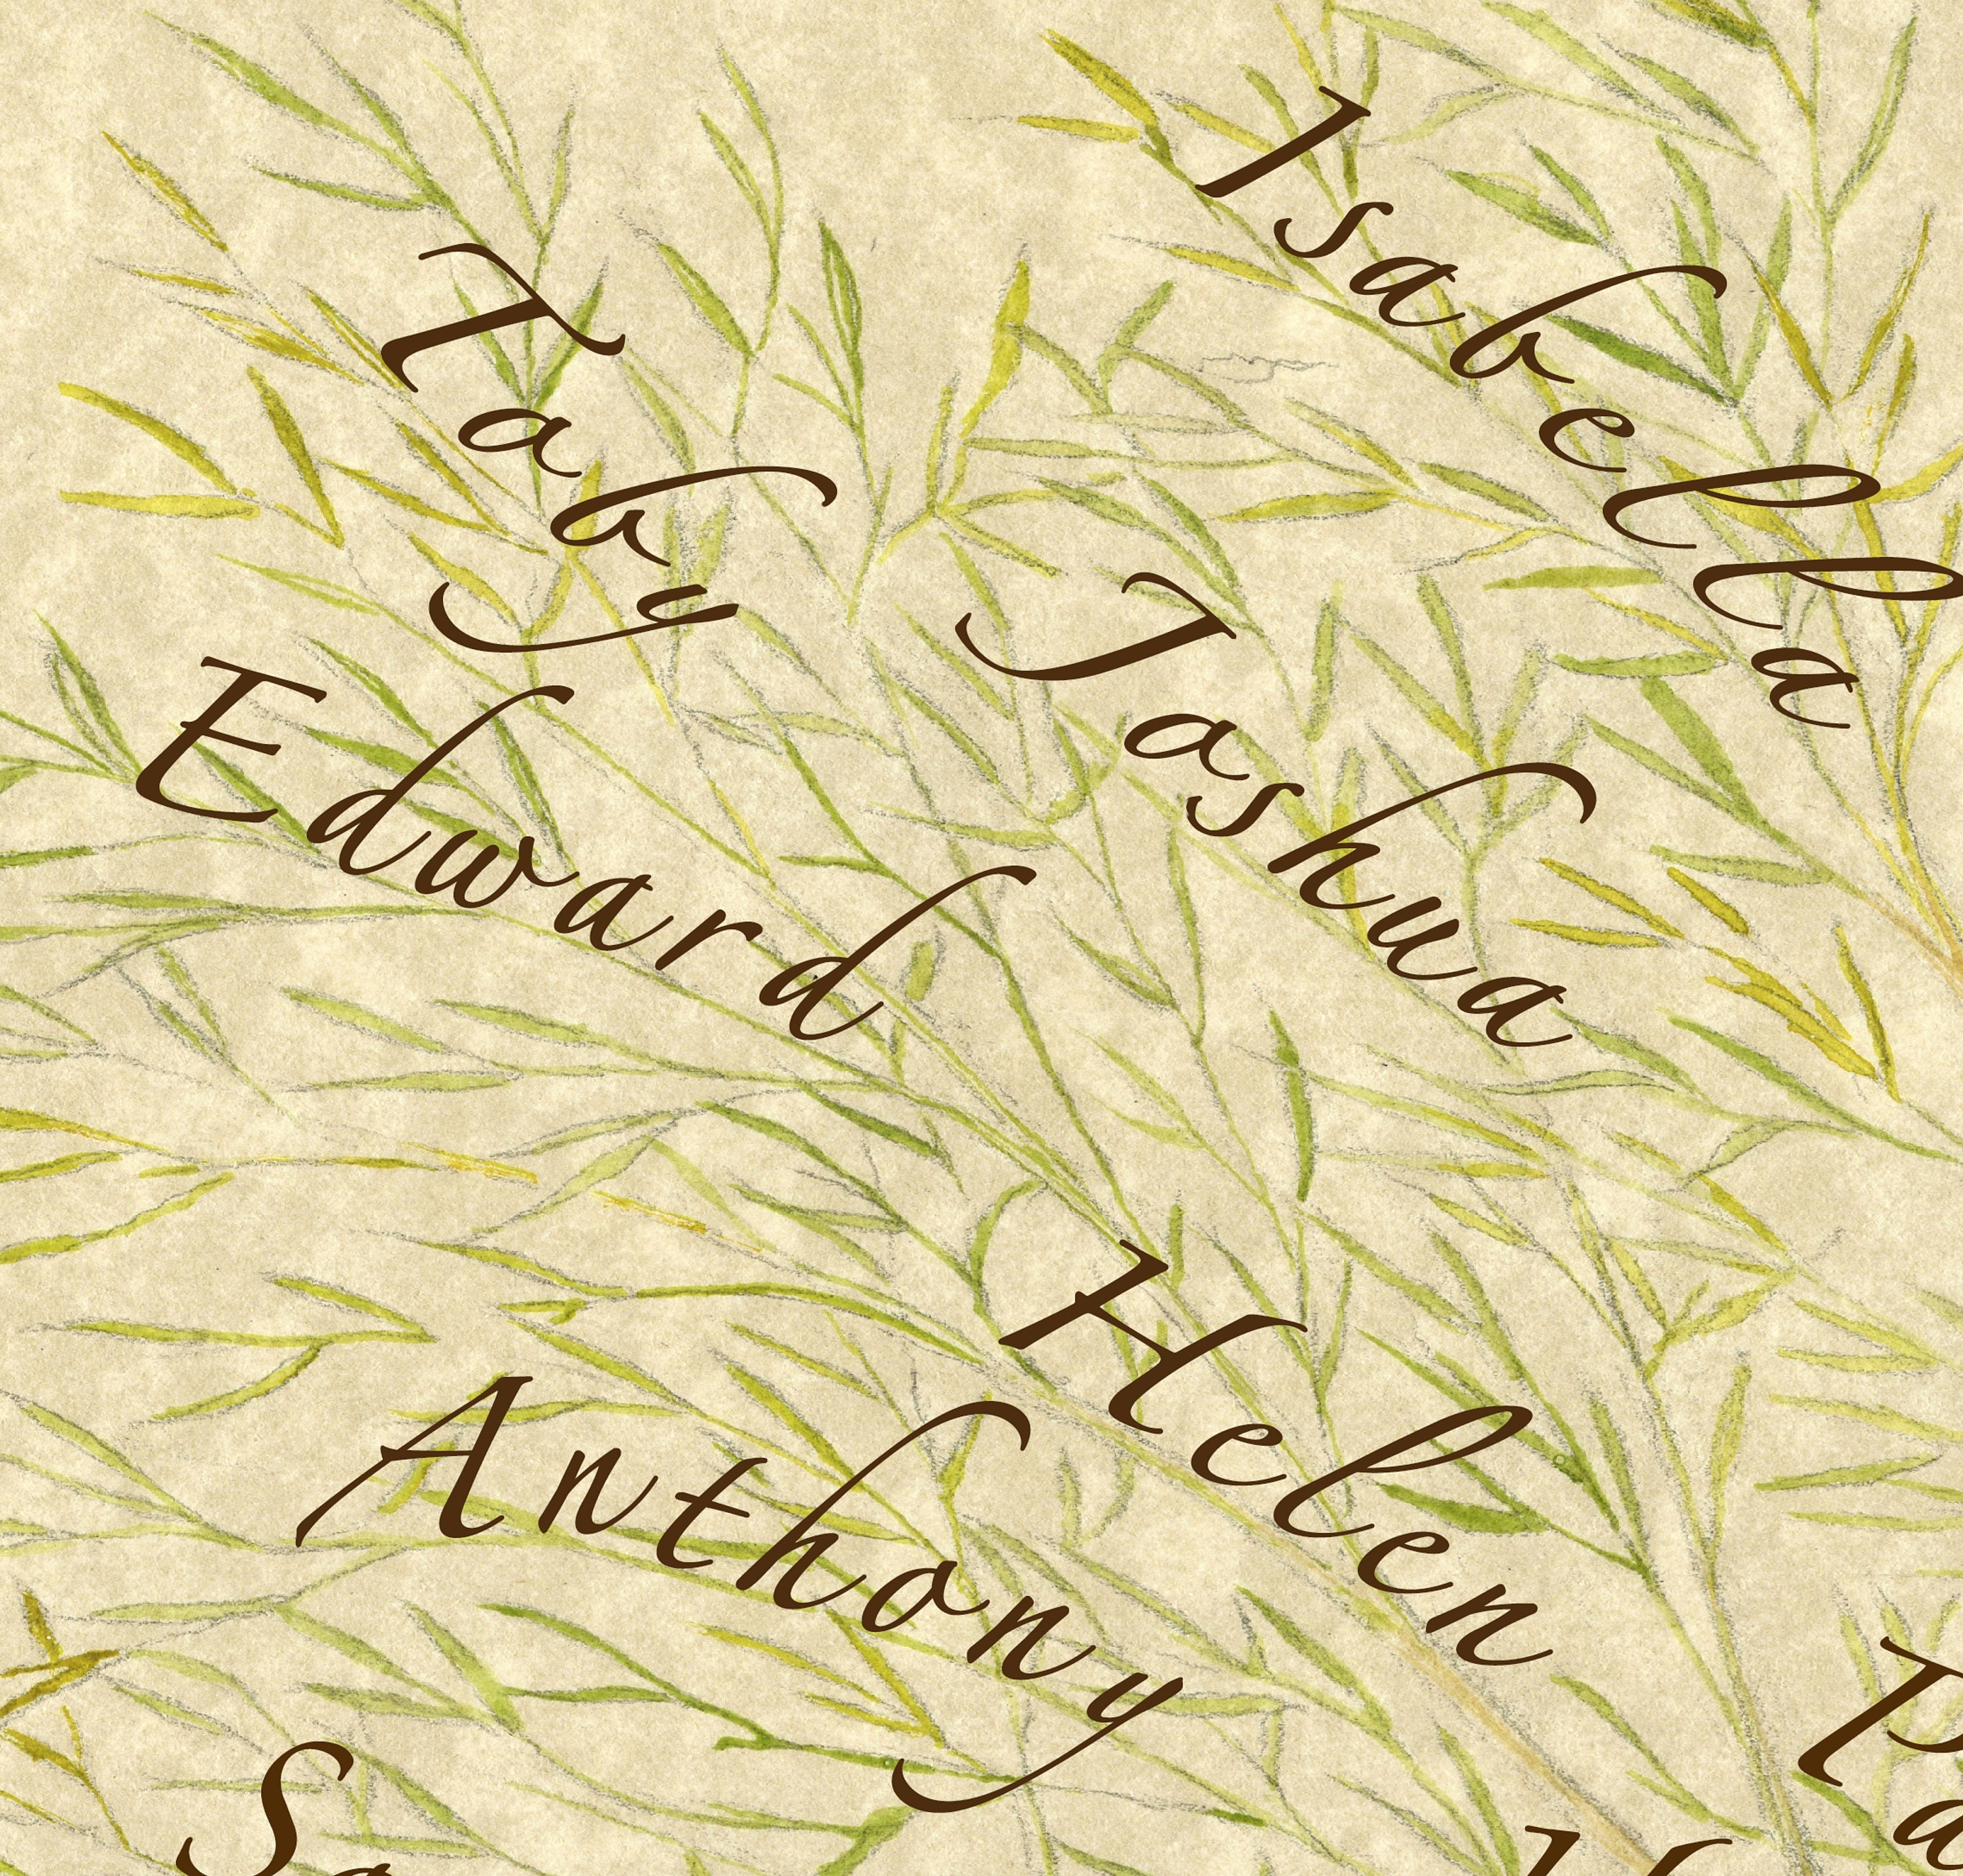 Isabella
Toby
Joshua
Edward
Helen
Anthony